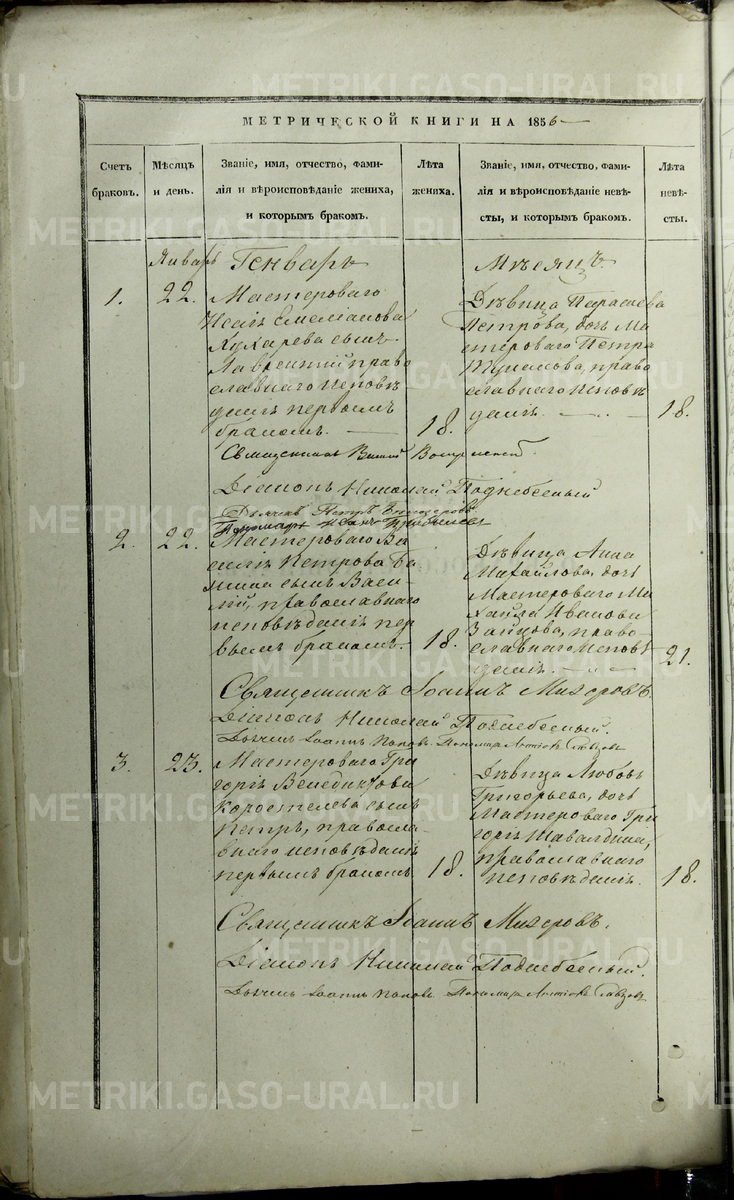 МЕТРИЧЕСКОЙ КНИГИ НА 1856
Счетъ браковъ.
Мѣсяцъ и день.
Званіе, имя, отчество, фами-
лія и вѣроисповѣданіе жениха,
и которымъ бракомъ.
Лѣта жениха.
Званіе, имя, отчество, фами-
лія и вѣроисповѣданіе невѣ-
сты, и которымъ бракомъ.
Лѣта невѣ-
сты.
Январь Генварь Мѣсяцъ
1. 22.
Мастероваго
Исаія Емеліанова
Кухарева сынъ
Лаврентій право
славнаго исповѣ
данія первымъ
бракомъ. 18.
Дѣвица Параскева
Петрова, дочь Ма
стероваго Петра
православнаго исповѣ
данія. 18.
Священникъ
Діаконъ Николай Поднебесный
Дьячекъ Петръ
Пономарь Иванъ
2. 22.
Мастероваго Ва
силія Петрова
сынъ Васи
лій, православнаго
исповѣданія пер
вымъ бракомъ. 18.
Дѣвица Анна
Михайлова, дочь
Мастероваго Ми
хаила Иванова
Зайцова, право
славнаго исповѣ
данія. 21.
Священникъ Іоаннъ Михеровъ.
Діаконъ Николай Поднебесный.
Дьячекъ Іоаннъ Поповъ. Пономарь
3. 23.
Мастероваго Гри
горія Венедиктова
Коростелева сынъ
Петръ, правосла-
внаго исповѣданія
первымъ бракомъ 18.
Дѣвица Любовь
Григорьева, дочь
Мастероваго Гри
горія Шавалдина,
православнаго
исповѣданія. 18.
Священникъ Іоаннъ Михеровъ.
Діаконъ Николай Поднебесный.
Дьячекъ Іоаннъ Поповъ Пономарь
METRIKI.GASO-URAL.RU